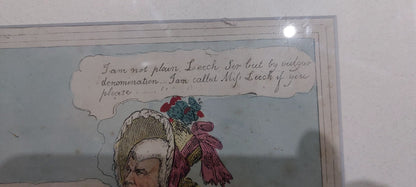 I am not plain Leech Sir but by vulgar
denomination... I am called Miss Leech if you
please........